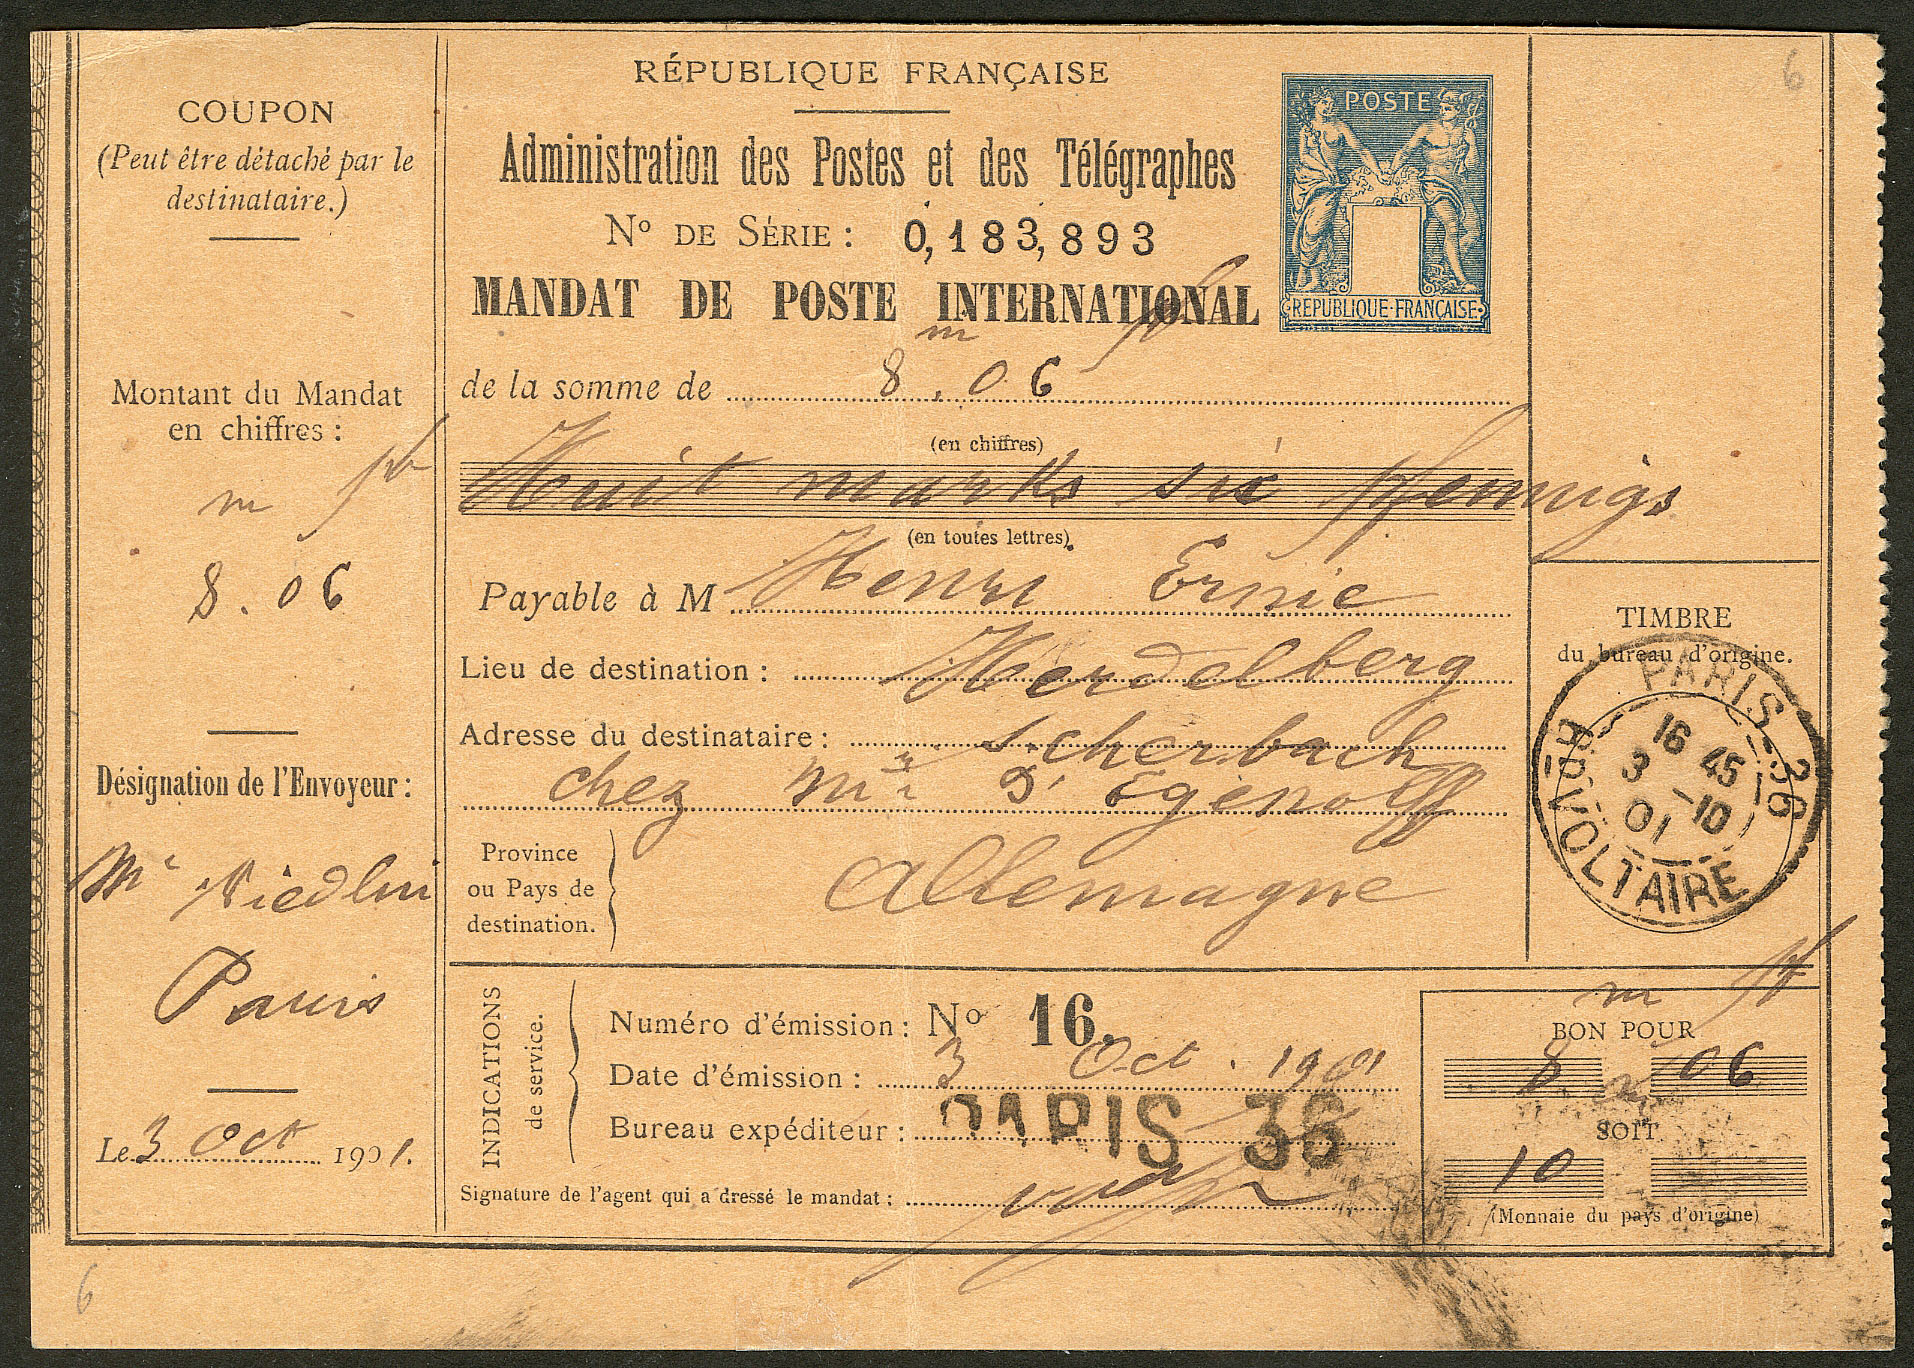 COUPON
(Peut être détaché par le
destinataire.)
Montant du Mandat
en chiffres :
m pf
8.06
Désignation de l'Envoyeur :
Mr
Paris
Le 3 Oct 1901.
RÉPUBLIQUE FRANÇAISE
Administration des Postes et des Télégraphes
No DE SÉRIE : 0,183,893
MANDAT DE POSTE INTERNATIONAL
m pf
de la somme de 8.06
(en chiffres)
Huit marks six pfennigs
(en toutes lettres).
Payable à M Henri Ernie
Lieu de destination : Heidelberg
Adresse du destinataire : Scherbach
chez Mr Dr Egenolff
Province
ou Pays de
destination.
Allemagne
POSTE
REPUBLIQUE FRANÇAISE
6
TIMBRE
du bureau d'origine.
PARIS-36
16 45
3 -10
01
Bd VOLTAIRE
INDICATIONS
de service.
Numéro d'émission : No 16.
Date d'émission : 3 Oct. 1901
Bureau expéditeur : PARIS 36
Signature de l'agent qui a dressé le mandat :
m pf
BON POUR
8 06
SOIT
10
(Monnaie du pays d'origine)
6